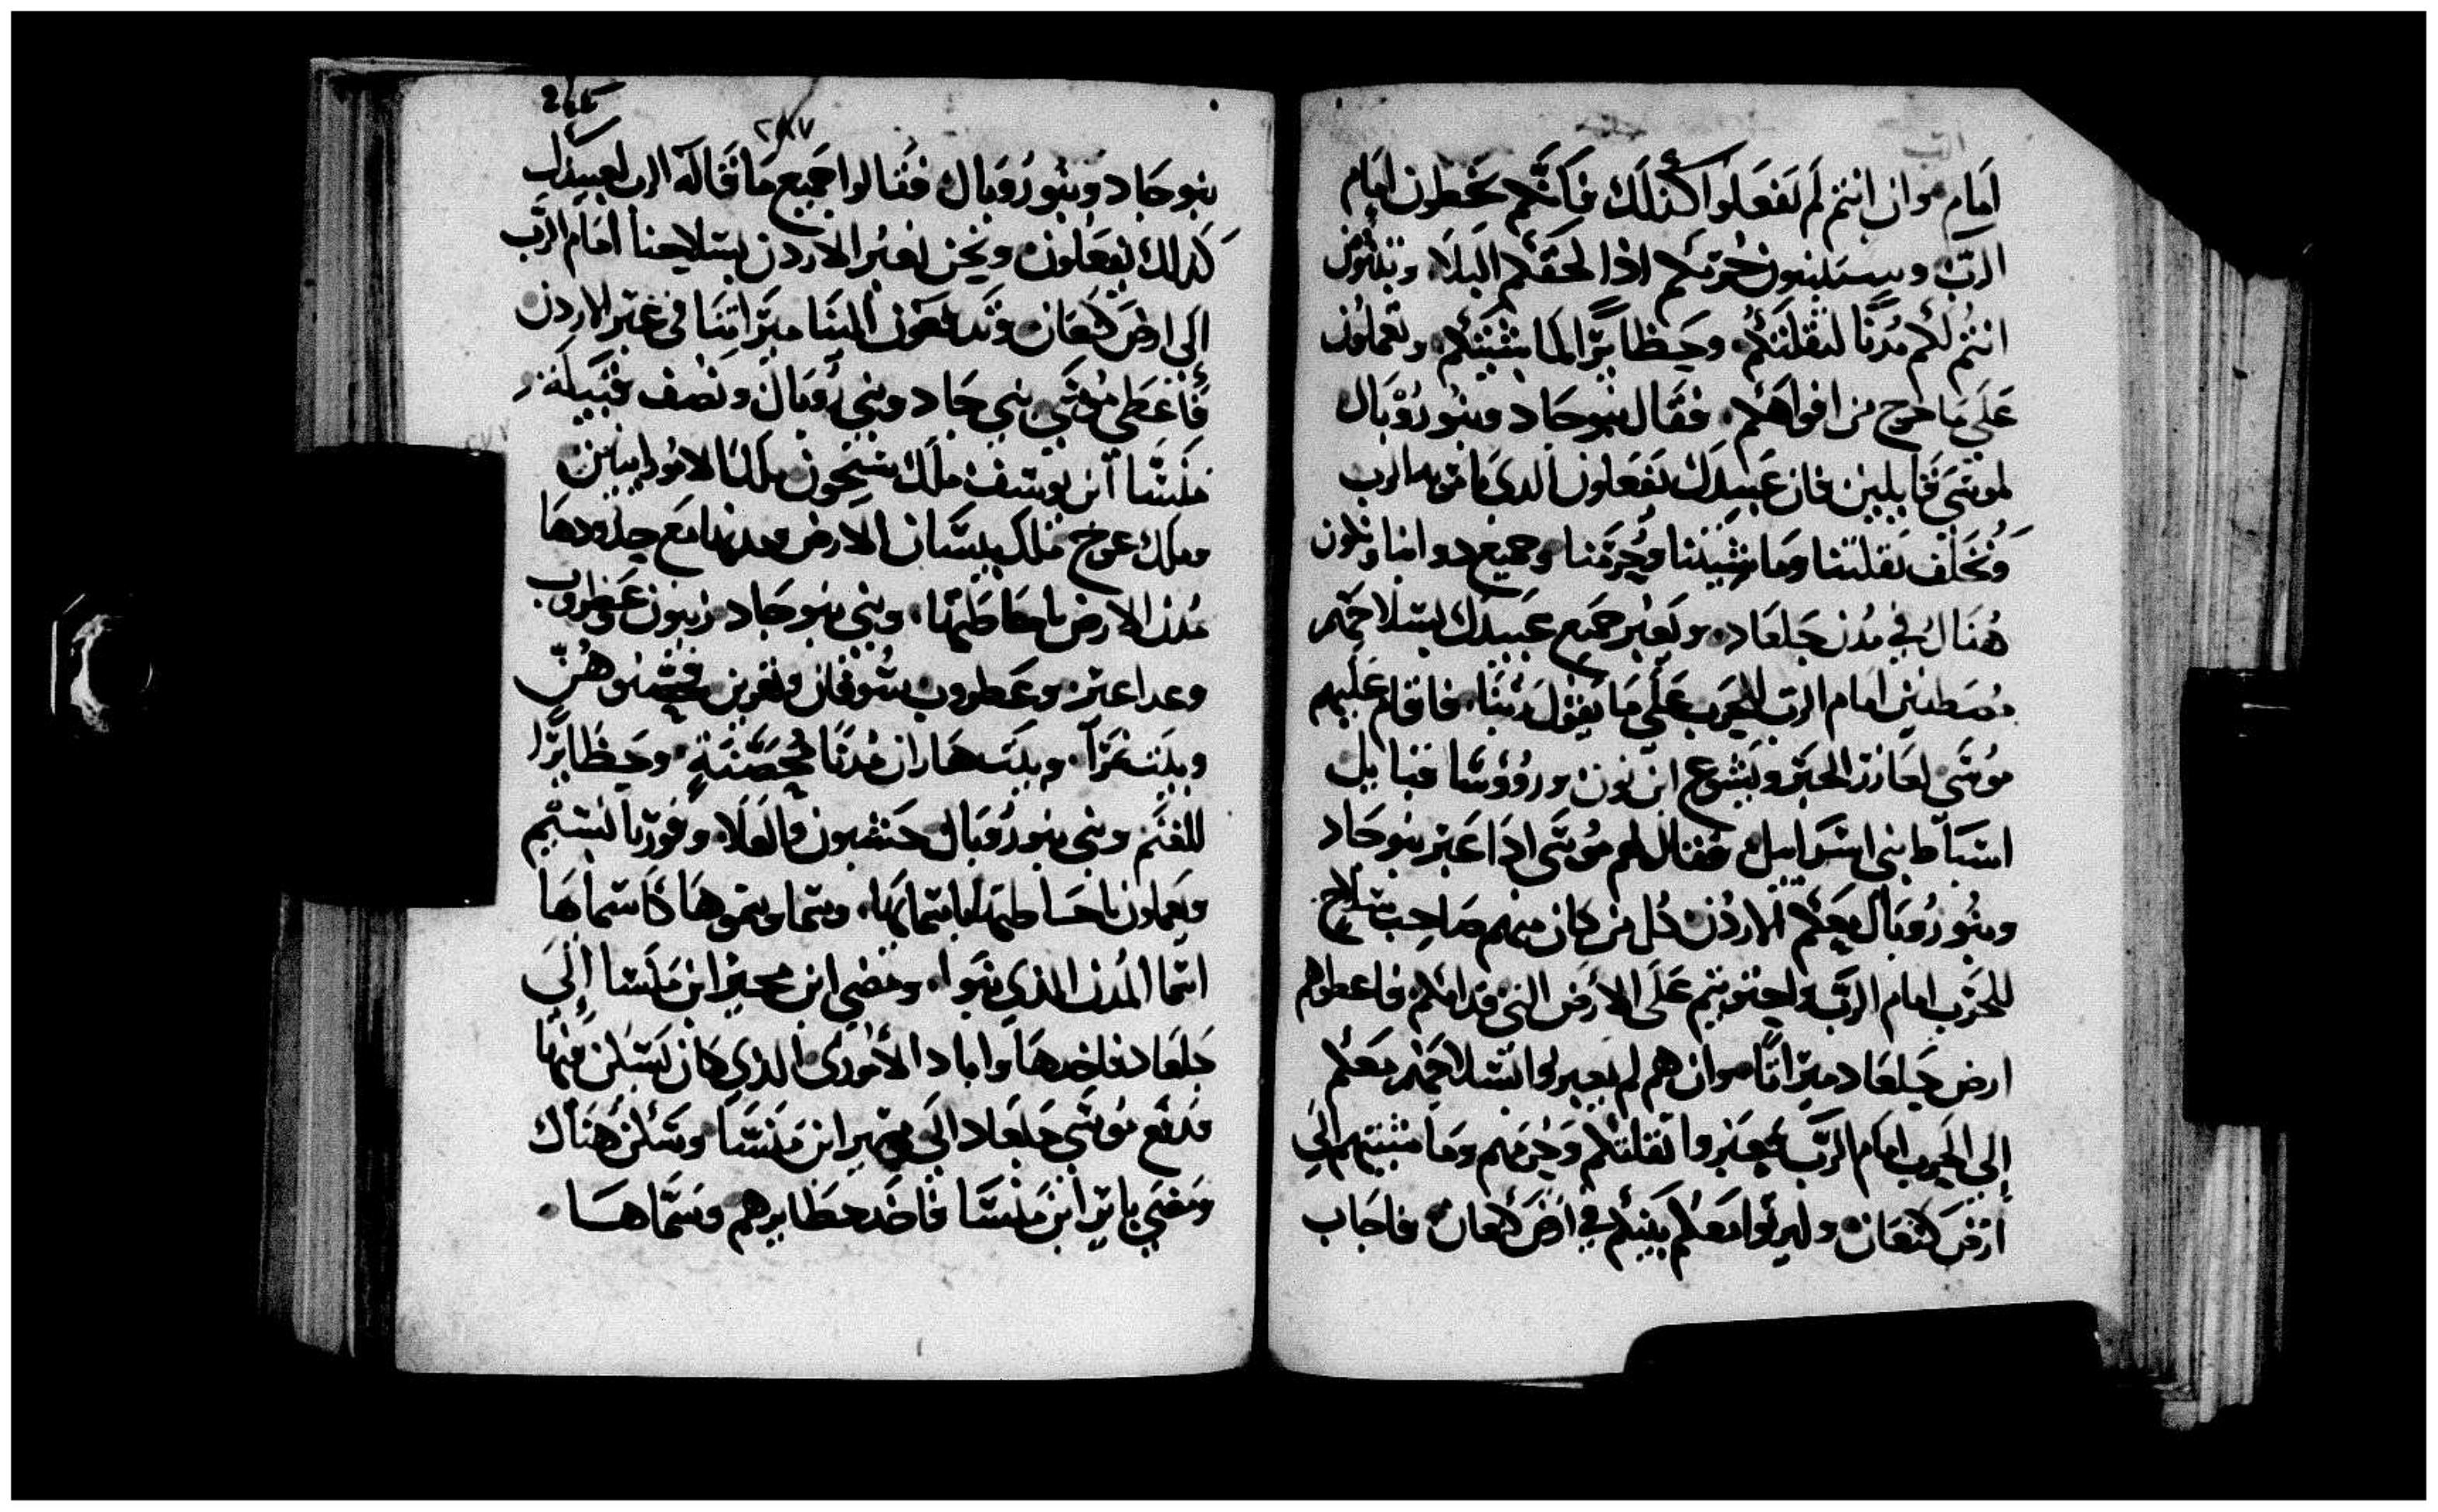 امام وان انتم لم تفعلوا كذلك فانكم تخطون امام
الرب وسيسلبون حرمكم اذا لحقكم البلا وتبنون
انتم لكم مدنا لثقلتكم وحظايرًا لماشيتكم وتعملون
على ما خرج من افواهكم فقال بنو جاد وبنو روبال
لموسى قايلين فان عبيدك تفعلون الدي الرب
ونخلف ثقلتنا وماشيتنا وحرمنا وجميع دوابنا
هناك في مدن جلعاد ويعبر جميع عبيدك بسلاحهم
مصطفين امام الرب للحرب على ما يقول ربنا فاقام عليهم
موسى لعازر الحبر ويشوع ابن نون وروؤسا قبايل
اسباط بني اسراييل فقال لهم موسى ادا عبر بنو جاد
وبنو روبال معكم الاردن كل من كان منهم صاحب سلاح
للحرب امام الرب واحتويتم على الارض التي قدامكم فاعطوهم
ارض جلعاد ميراثًا وان هم لم يعبروا بسلاحهم معكم
إلى الحرب امام الرب فيعبروا ثقلتكم وحرمهم وماشيتهم الى
ارض كنعان وليرثوا معكم بينكم في ارض كنعان فاجاب
٢٨٧
بنو جاد وبنو روبال فقالوا جميع ما قاله الرب لعبيدك
كدلك يفعلون ونحن نعبر الاردن بسلاحنا امام الرب
إلى ارض كنعان وتدفعون الينا ميراثنا في عبر الاردن
فأعطي موسى بني جاد وبني روبال ونصف قبيلة
منسا ابن يوسف ملك سيحون ملك الامورايين
وملك عوج ملك بيسان الارض ومدنها مع حدودها
مدن الارض باحاطتها وبني بنو جاد زيبون وعطروب
وعداعير وعطروب شوفان ونعزين فحصنوهن
وبيت نمرا وبيت هاران مدنًا محصنة وحظايرًا
للغنم وبني بنو روبال حسبون والعلا وقوريا
ويعملون باحاطتها باسمايها وسما وسموها كاسمايها
اسما المدن الذي بنوا ومضي ابن مجير ابن منسا إلى
جلعاد فاخدها وابادا الأموري الذي كان يسكن فيها
فدفع موسى جلعاد الى مجير ابن منسا وسكن هناك
ومضي يايير ابن منسا فاخد حظايرهم وسماها